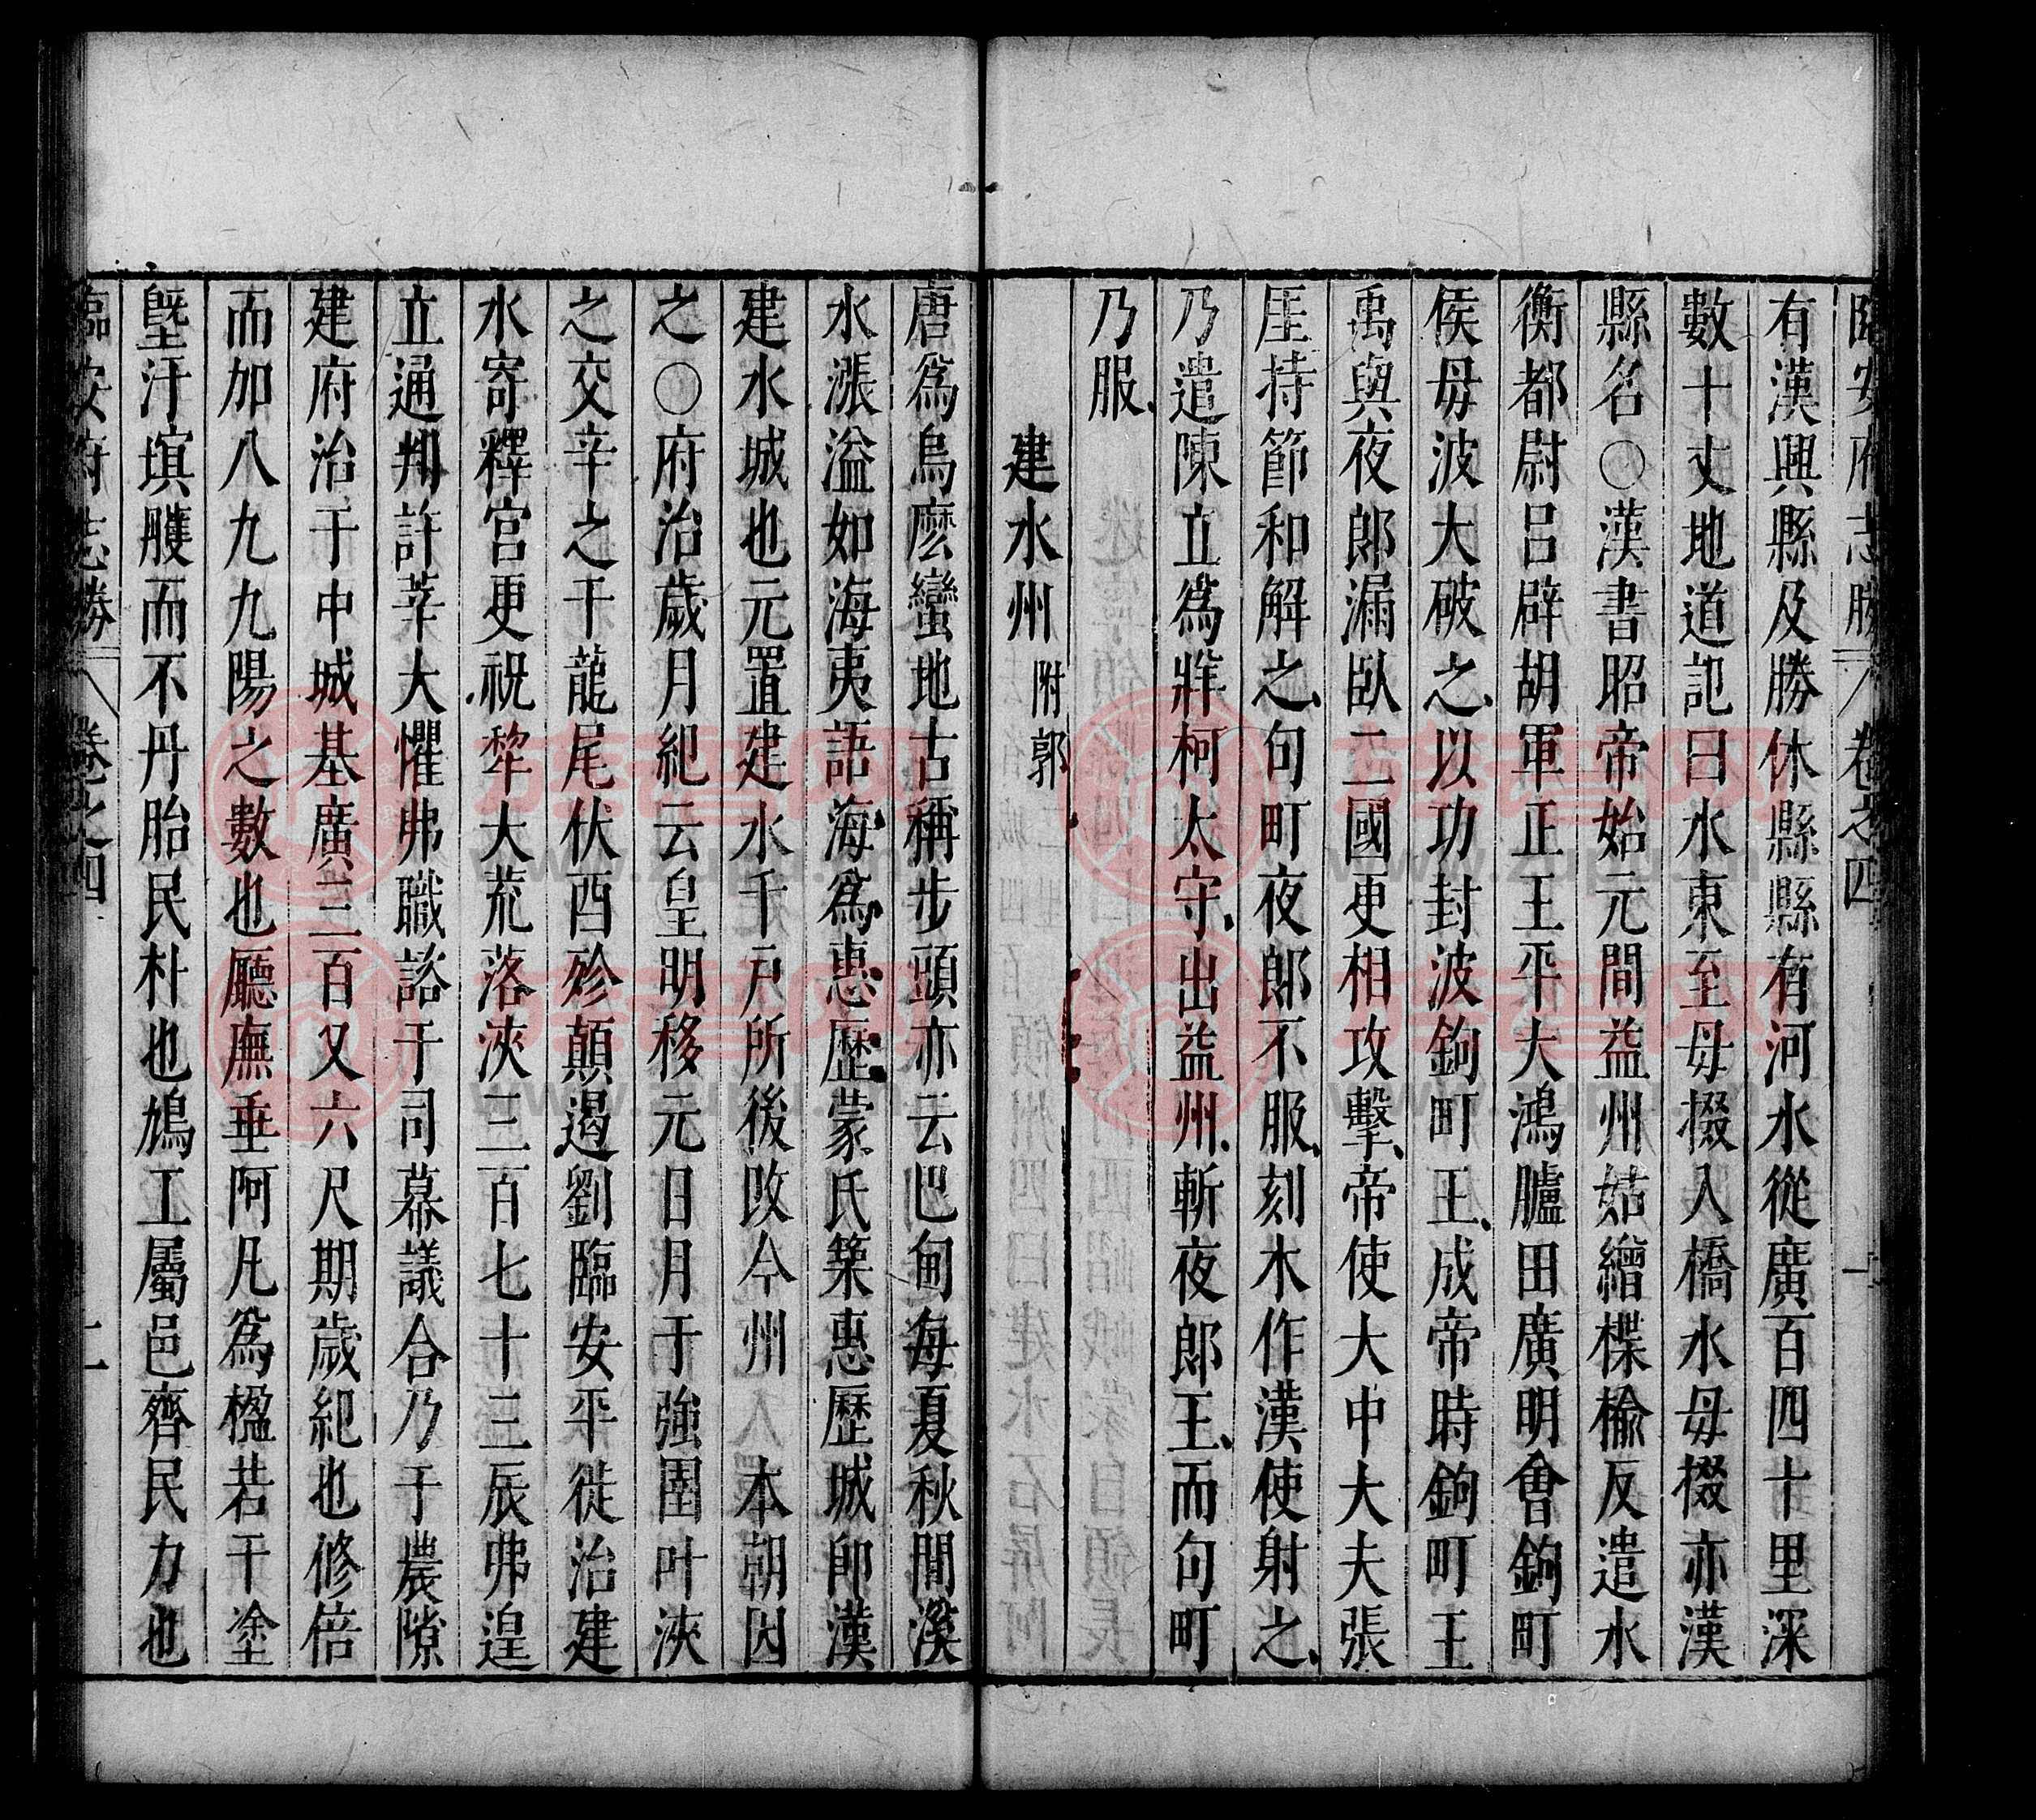 臨安府志勝 卷之四 一
有漢興縣及勝休縣縣有河水從廣百四十里深
數十丈地道記曰水東至毋掇入橋水毋掇亦漢
縣名○漢書昭帝始元間益州姑繒楪榆反遣水
衡都尉呂辟胡軍正王平大鴻臚田廣明會鉤町
侯毋波大破之以功封波鉤町王成帝時鉤町王
禹與夜郎漏臥二國更相攻擊帝使大中大夫張
匡持節和解之句町夜郎不服刻木作漢使射之
乃遣陳立為牂柯太守出益州斬夜郎王而句町
乃服
建水州附郭
唐爲烏麽蠻地古稱步頭亦云巴甸每夏秋間溪
水漲溢如海夷語海爲惠歷蒙氏築惠歷城卽漢
建水城也元置建水千戸所後改今州 本朝因
之○府治歲月紀云皇明移元日月于強圉叶浹
之交辛之干龍尾伏酉殄顛遏劉臨安平徙治建
水寄釋宮更祝犂大荒落浹三百七十三辰弗遑
立通判許莘大懼弗職諮于司幕議合乃于農隙
建府治于中城基廣三百又六尺期歲紀也修倍
而加八九九陽之數也廳廡垂阿凡爲楹若干塗
墍汙塓雘而不丹胎民朴也鳩工屬邑齊民力也
臨安府志勝 卷之四 二